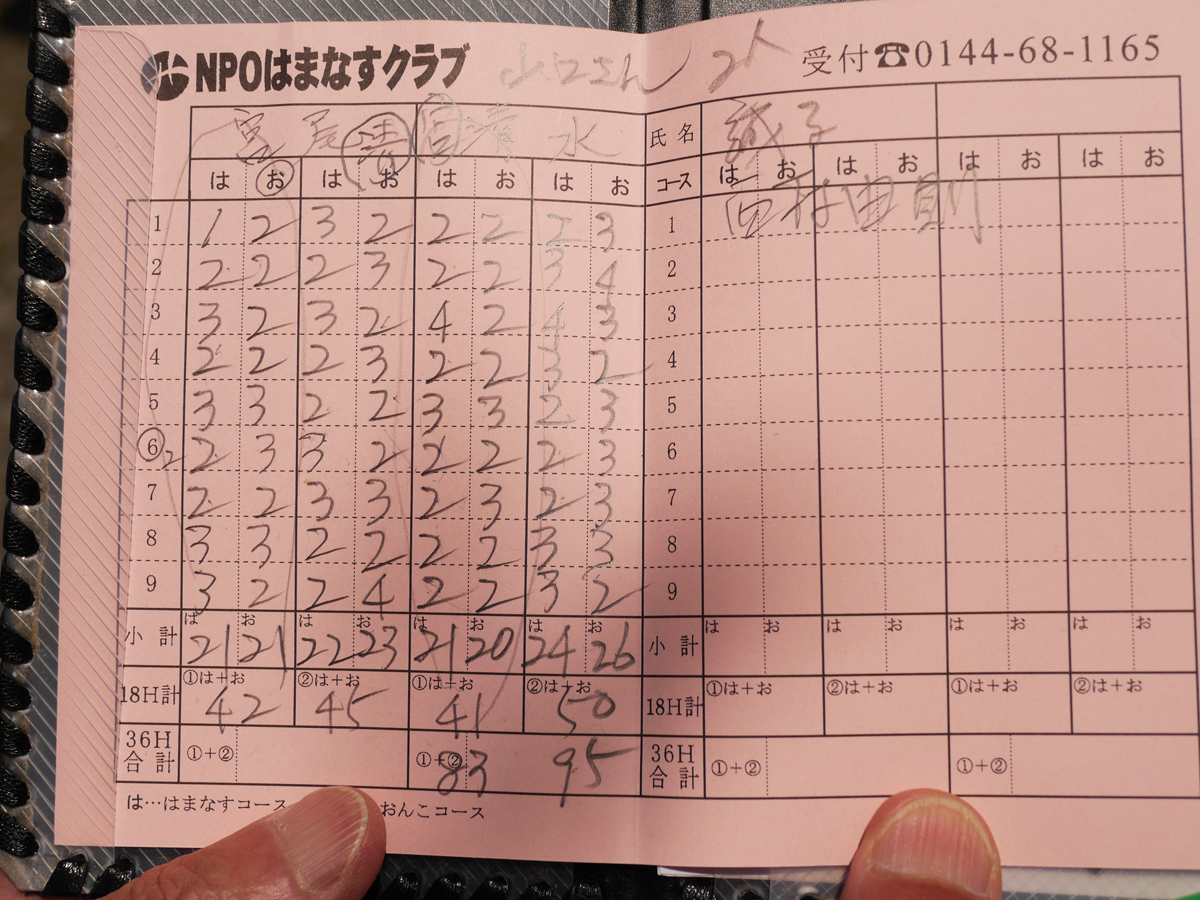 NPOはまなすクラブ 山口さん 2人 受付☎0144-68-1165
宮 尾 清 宮 清 水 氏名 誠子
は お は お は お は お コース は お は お は お は お
1 1 2 3 2 2 2 2 3 1 西村由則
2 2 2 2 3 2 2 3 4 2
3 3 2 3 2 4 2 4 3 3
4 2 2 2 3 2 2 3 2 4
5 3 3 2 2 3 3 2 3 5
6 2 2 3 3 2 2 2 2 3 6
7 2 2 3 3 2 3 2 3 7
8 3 3 2 2 2 2 3 3 8
9 3 2 2 4 2 2 3 2 9
小計 は 21 お 21 は 22 お 23 は 21 お 20 は 24 お 26 小計 は お は お は お は お
18H計 ①は+お 42 ②は+お 45 ①は+お 41 ②は+お 50 18H計 ①は+お ②は+お ①は+お ②は+お
36H合計 ①+② ①+② 83 95 36H合計 ①+② ①+②
は…はまなすコース おんこコース